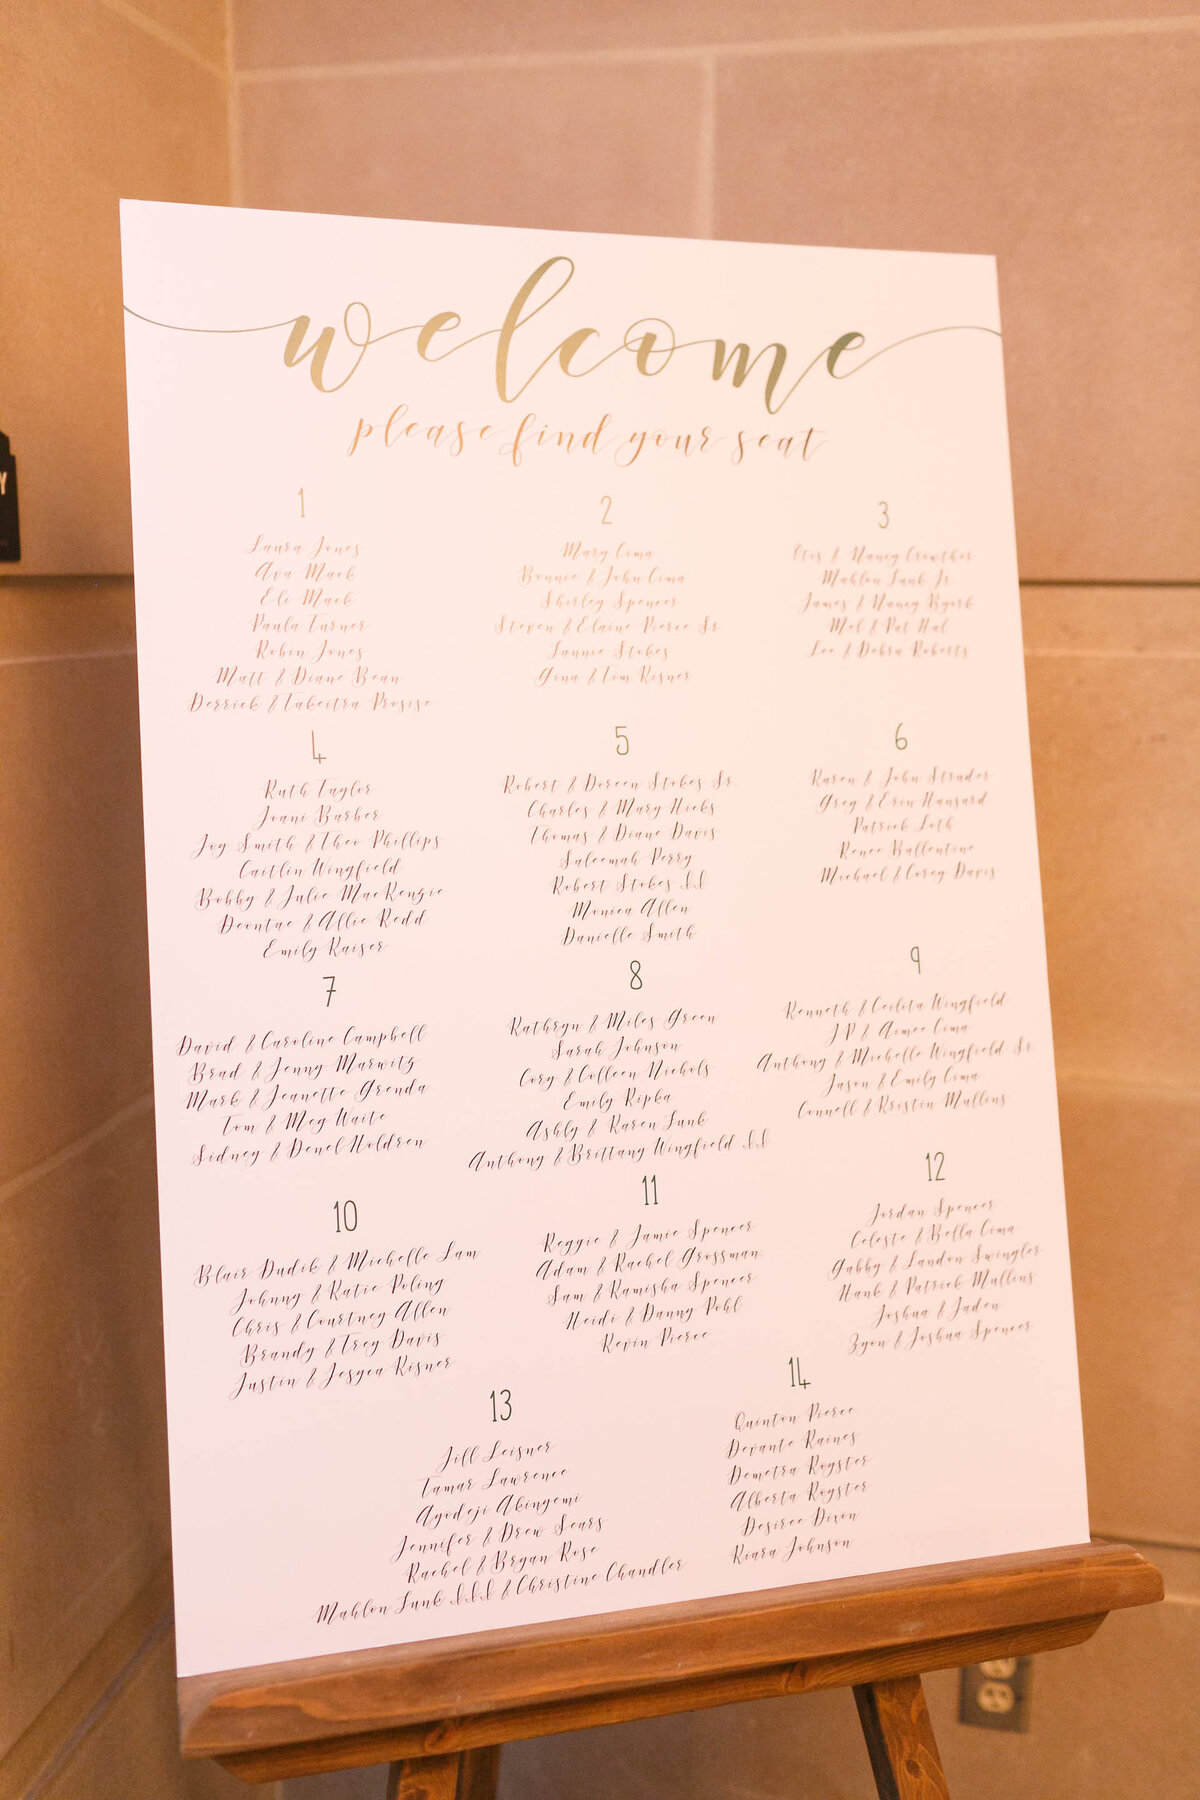 welcome
please find your seat
1
Laura Jones
Ava Mack
Eli Mack
Paula Turner
Robin Jones
Matt & Diane Bean
Derrick & Takeitra Prosise
2
Mary Cima
Bonnie & John Cima
Shirley Spencer
Steven & Elaine Pierce Sr.
Lannie Stokes
Gina & Tom Risner
3
Otis & Nancy Crowther
Mahlon Lunk Jr.
James & Nancy Bjork
Mel & Pat Hal
Lee & Debra Roberts
4
Ruth Taylor
Joani Barber
Joy Smith & Theo Phillips
Caitlin Wingfield
Bobby & Julie MacKenzie
Deontae & Allie Redd
Emily Kaiser
5
Robert & Doreen Stokes Sr.
Charles & Mary Hicks
Thomas & Diane Davis
Saleemah Perry
Robert Stokes II
Monica Allen
Danielle Smith
6
Karen & John Struder
Greg & Erin Hansard
Patrick Loth
Renee Ballentine
Michael & Corey Davis
7
David & Caroline Campbell
Brad & Jenny Marwitz
Mark & Jeanette Grenda
Tom & Meg Waite
Sidney & Denel Holdren
8
Kathryn & Miles Green
Sarah Johnson
Cory & Colleen Nichols
Emily Ripka
Ashby & Karen Lunk
Anthony & Brittany Wingfield II
9
Kenneth & Ceilita Wingfield
JP & Aimee Cima
Anthony & Michelle Wingfield Sr.
Jason & Emily Cima
Connell & Kristin Mullins
10
Blair Dudik & Michelle Lam
Johnny & Katie Poling
Chris & Courtney Allen
Brandy & Trey Davis
Justin & Jesyca Risner
11
Reggie & Jamie Spencer
Adam & Rachel Grossman
Sam & Ramisha Spencer
Heidi & Danny Pohl
Kevin Pierce
12
Jordan Spencer
Celeste & Bella Cima
Gabby & Landon Swingler
Hank & Patrick Mullins
Joshua & Jaden
Zyon & Joshua Spencer
13
Jill Leisner
Tamar Lawrence
Ayodeji Akinyemi
Jennifer & Drew Sears
Rachel & Bryan Rose
Mahlon Lunk III & Christine Chandler
14
Quinton Pierce
Devante Raines
Demetra Royster
Alberta Royster
Desiree Dixon
Kiara Johnson